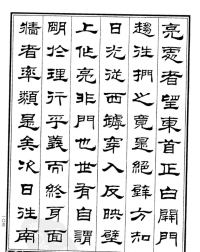 亮處者望東首正白開門
趨往捫之竟是絕壁方知
日光從西罅穿入反映壁
上作亮非門也世有自謂
明於理行乎義而終身面
牆者率類是矣次日往南